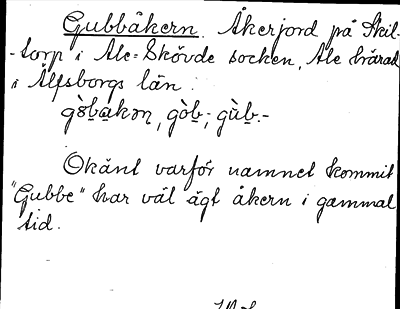 Gubbåkern. Åkerjord på Skil-
-torp i Ale-Skövde socken, Ale härad
i Älfsborgs län.
gòbakɷn, gòb-; gùb.-
Okänt varför namnet kommit
"Gubbe" har väl ägt åkern i gammal
tid.